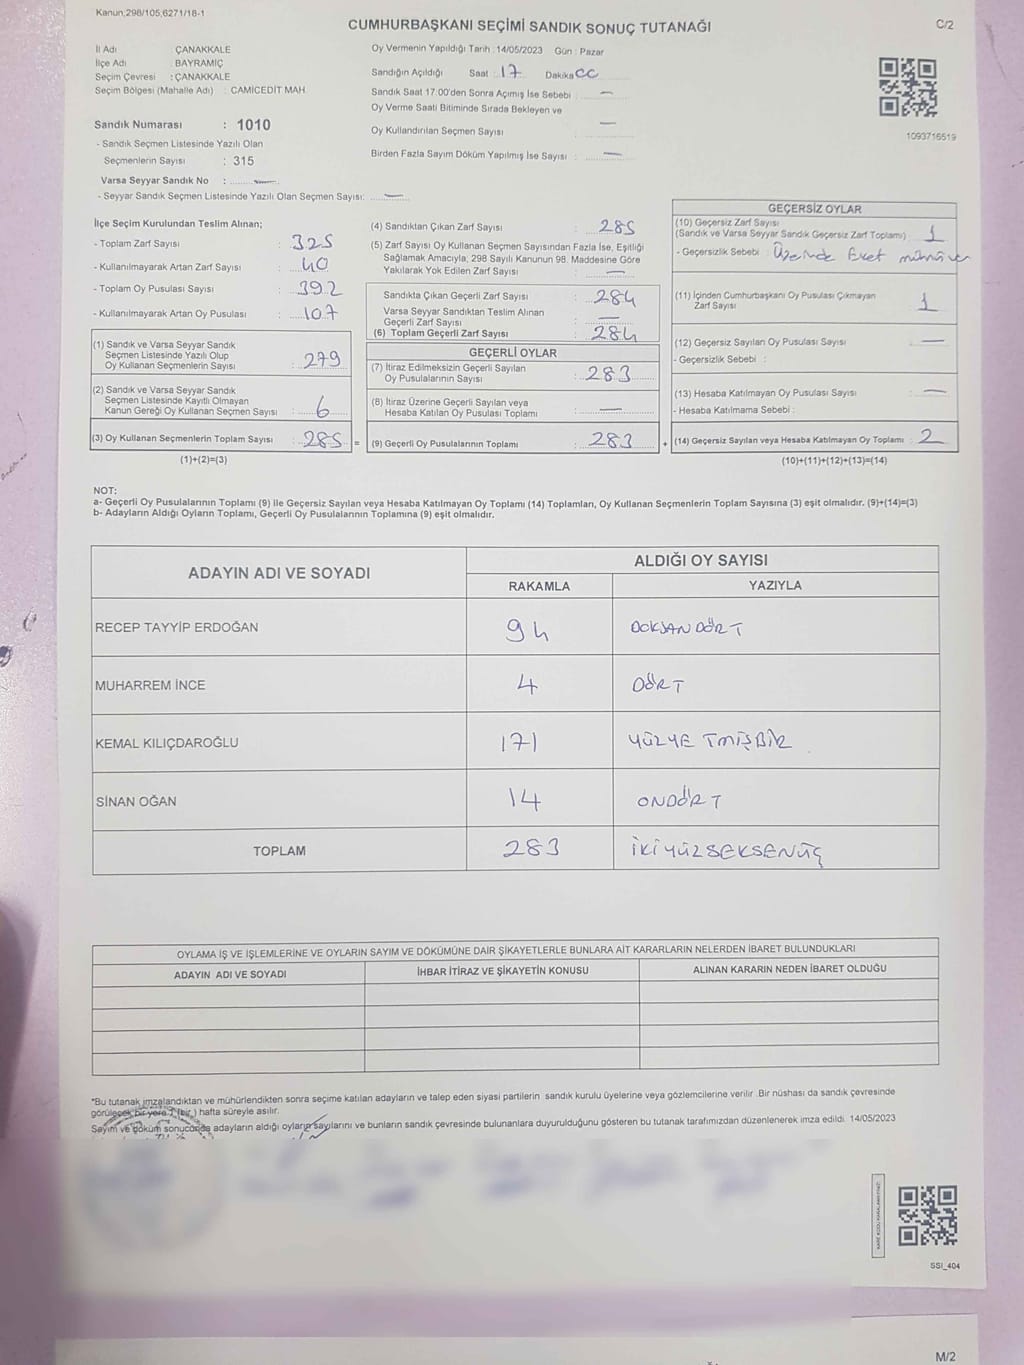 Kanun,298/105,6271/18-1
CUMHURBAŞKANI SEÇİMİ SANDIK SONUÇ TUTANAĞI
C/2
İl Adı : ÇANAKKALE
İlçe Adı : BAYRAMİÇ
Seçim Çevresi : ÇANAKKALE
Seçim Bölgesi (Mahalle Adı) : CAMİCEDİT MAH.
Sandık Numarası : 1010
- Sandık Seçmen Listesinde Yazılı Olan
Seçmenlerin Sayısı : 315
Varsa Seyyar Sandık No : —
- Seyyar Sandık Seçmen Listesinde Yazılı Olan Seçmen Sayısı: —
Oy Vermenin Yapıldığı Tarih : 14/05/2023 Gün : Pazar
Sandığın Açıldığı Saat : 17 Dakika
Sandık Saat 17:00'den Sonra Açımış İse Sebebi : —
Oy Verme Saati Bitiminde Sırada Bekleyen ve
Oy Kullandırılan Seçmen Sayısı : —
Birden Fazla Sayım Döküm Yapılmış İse Sayısı : —
1093716519
İlçe Seçim Kurulundan Teslim Alınan;
- Toplam Zarf Sayısı : 325
- Kullanılmayarak Artan Zarf Sayısı : 40
- Toplam Oy Pusulası Sayısı : 392
- Kullanılmayarak Artan Oy Pusulası : 107
(1) Sandık ve Varsa Seyyar Sandık
Seçmen Listesinde Yazılı Olup
Oy Kullanan Seçmenlerin Sayısı : 279
(2) Sandık ve Varsa Seyyar Sandık
Seçmen Listesinde Kayıtlı Olmayan
Kanun Gereği Oy Kullanan Seçmen Sayısı : 6
(3) Oy Kullanan Seçmenlerin Toplam Sayısı : 285 =
(1)+(2)=(3)
(4) Sandıktan Çıkan Zarf Sayısı : 285
(5) Zarf Sayısı Oy Kullanan Seçmen Sayısından Fazla İse, Eşitliği
Sağlamak Amacıyla; 298 Sayılı Kanunun 98. Maddesine Göre
Yakılarak Yok Edilen Zarf Sayısı : —
Sandıkta Çıkan Geçerli Zarf Sayısı : 284
Varsa Seyyar Sandıktan Teslim Alınan
Geçerli Zarf Sayısı : —
(6) Toplam Geçerli Zarf Sayısı : 284
GEÇERLİ OYLAR
(7) İtiraz Edilmeksizin Geçerli Sayılan
Oy Pusulalarının Sayısı : 283
(8) İtiraz Üzerine Geçerli Sayılan veya
Hesaba Katılan Oy Pusulası Toplamı : —
(9) Geçerli Oy Pusulalarının Toplamı : 283 +
GEÇERSİZ OYLAR
(10) Geçersiz Zarf Sayısı
(Sandık ve Varsa Seyyar Sandık Geçersiz Zarf Toplamı) : 1
- Geçersizlik Sebebi : Üzerinde Evet mührü var
(11) İçinden Cumhurbaşkanı Oy Pusulası Çıkmayan
Zarf Sayısı : 1
(12) Geçersiz Sayılan Oy Pusulası Sayısı : —
- Geçersizlik Sebebi :
(13) Hesaba Katılmayan Oy Pusulası Sayısı : —
- Hesaba Katılmama Sebebi :
(14) Geçersiz Sayılan veya Hesaba Katılmayan Oy Toplamı : 2
(10)+(11)+(12)+(13)=(14)
NOT:
a- Geçerli Oy Pusulalarının Toplamı (9) ile Geçersiz Sayılan veya Hesaba Katılmayan Oy Toplamı (14) Toplamları, Oy Kullanan Seçmenlerin Toplam Sayısına (3) eşit olmalıdır. (9)+(14)=(3)
b- Adayların Aldığı Oyların Toplamı, Geçerli Oy Pusulalarının Toplamına (9) eşit olmalıdır.
ADAYIN ADI VE SOYADI
ALDIĞI OY SAYISI
RAKAMLA YAZIYLA
RECEP TAYYİP ERDOĞAN 94 DOKSAN DÖRT
MUHARREM İNCE 4 DÖRT
KEMAL KILIÇDAROĞLU 171 YÜZYETMİŞBİR
SİNAN OĞAN 14 ONDÖRT
TOPLAM 283 İKİYÜZSEKSENÜÇ
OYLAMA İŞ VE İŞLEMLERİNE VE OYLARIN SAYIM VE DÖKÜMÜNE DAİR ŞİKAYETLERLE BUNLARA AİT KARARLARIN NELERDEN İBARET BULUNDUKLARI
ADAYIN ADI VE SOYADI
İHBAR İTİRAZ VE ŞİKAYETİN KONUSU
ALINAN KARARIN NEDEN İBARET OLDUĞU
*Bu tutanak imzalandıktan ve mühürlendikten sonra seçime katılan adayların ve talep eden siyasi partilerin sandık kurulu üyelerine veya gözlemcilerine verilir. Bir nüshası da sandık çevresinde
görülecek bir yere 1 (bir ) hafta süreyle asılır.
Sayım ve döküm sonucunda adayların aldığı oyların sayılarını ve bunların sandık çevresinde bulunanlara duyurulduğunu gösteren bu tutanak tarafımızdan düzenlenerek imza edildi. 14/05/2023
SSI_404
M/2